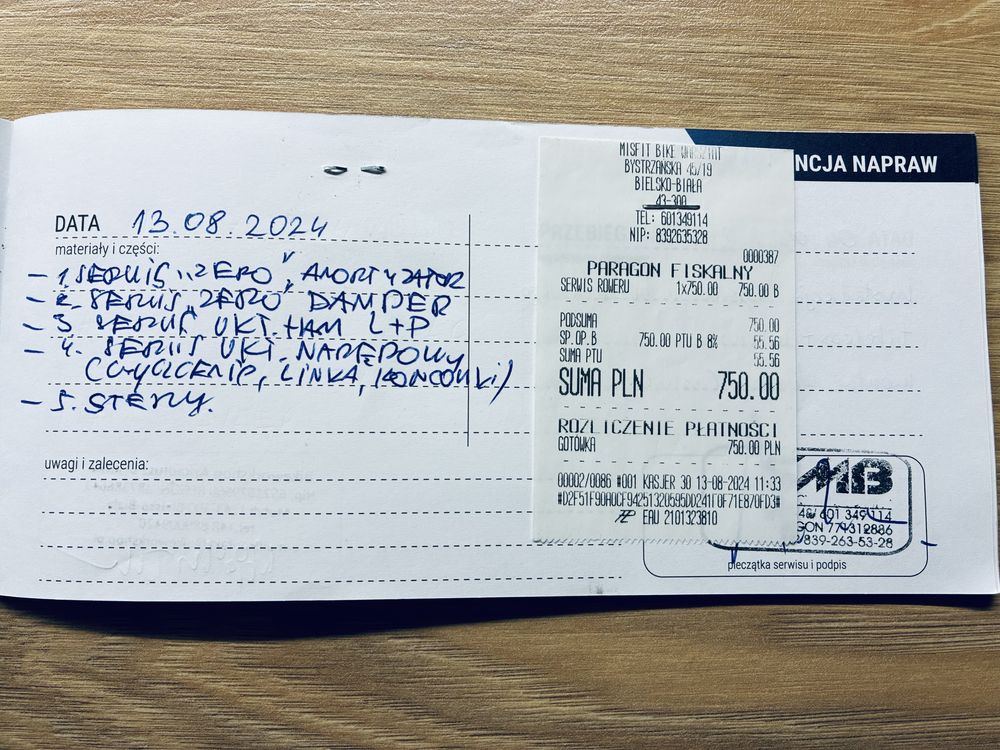 NCJA NAPRAW
DATA 13.08.2024
materiały i części:
- 1. SERWIS „ZERO” AMORTYZATOR
- 2. SERWIS „ZERO” DAMPER
- 3. SERWIS UKŁ. HAM L+P
- 4. SERWIS UKŁ. NAPĘDOWY
(CZYSZCZENIE, LINKA, KOŃCÓWKI)
- 5. STERY.
uwagi i zalecenia:
MISFIT BIKE WARSZTAT
BYSTRZAŃSKA 45/19
BIELSKO-BIAŁA
43-300
TEL: 601349114
NIP: 8392635328
0000387
PARAGON FISKALNY
SERWIS ROWERU 1x750.00 750.00 B
PODSUMA 750.00
SP.OP.B 750.00 PTU B 8% 55.56
SUMA PTU 55.56
SUMA PLN 750.00
ROZLICZENIE PŁATNOŚCI
GOTÓWKA 750.00 PLN
00002/0086 #001 KASJER 30 13-08-2024 11:33
EAU 2101323810
MB
601 349 114
GON 779312886
839-263-53-28
pieczątka serwisu i podpis